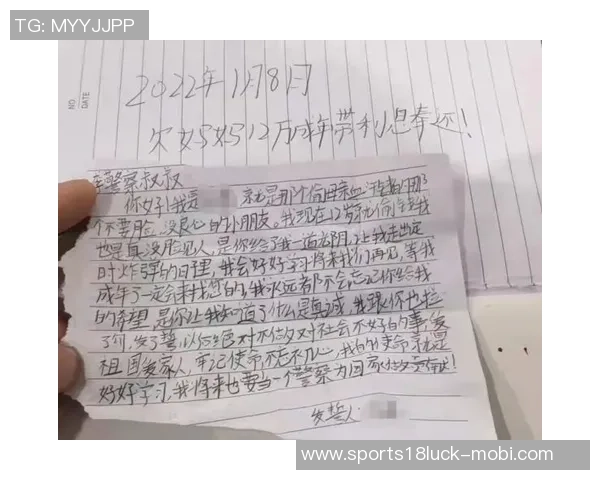 TG: MYYJJPP
NO.
DATE
2022年1月8日
欠妈妈12万成年带利息奉还!
警察叔叔
你好!我是 就是那个偷母亲血汗钱的那
个不要脸,没良心的小朋友。我现在12岁就偷钱我
也是真没脸见人,是你给了我一道阳,让我走出定
时炸弹的心理,我会好好学习将来我们再见,等我
成年了一定会来找您的,我永远都不会忘记你给我
的希望,是你让我知道了什么是真诚,我跟你也拦
了勾,发了誓,以后绝对不做对社会不好的事,爱
祖国爱家人,牢记使命,不忘初心,我的使命就是
好好学习,我将来也要当一个警察为国家做贡献!
发誓人
www.sports18luck-mobi.com